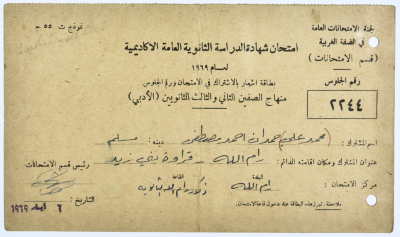 لجنة الامتحانات العامة
في الضفة الغربية
(قسم الامتحانات)
رقم الجلوس
٢٢٤٤
نموذج ث ٥٥ ج
امتحان شهادة الدراسة الثانوية العامة الاكاديمية
لعام ١٩٦٩
بطاقة اشعار بالاشتراك في الامتحان ورقم الجلوس
منهاج الصفين الثاني والثالث الثانويين (الأدبي)
اسم المشترك: (محمد علي) حمدان احمد مصطفى دينه: مسلم
عنوان المشترك ومكان اقامته الدائم: رام الله - قراوة بني زيد
مركز الامتحان: البلدة رام الله القاعة ذكور رام الله الثانوية
رئيس قسم الامتحانات
التاريخ: ١٩٦٩
ملاحظة: تبرز هذه البطاقة عند دخول قاعة الامتحان.